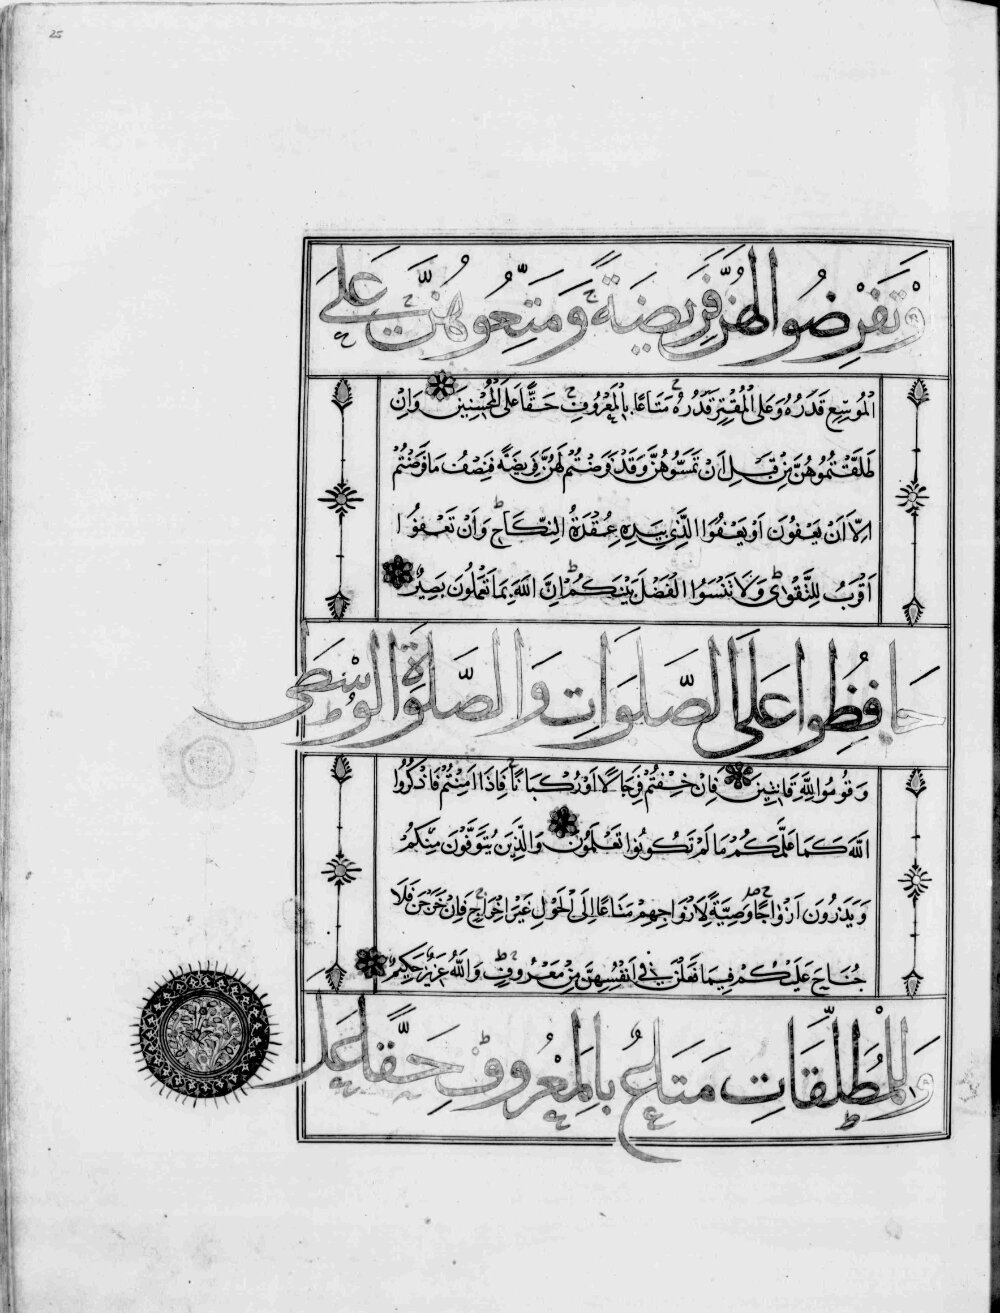 25
تَفْرِضُوا لَهُنَّ فَرِيضَةً وَمَتِّعُوهُنَّ عَلَى
الْمُوسِعِ قَدَرُهُ وَعَلَى الْمُقْتِرِ قَدَرُهُ مَتَاعًا بِالْمَعْرُوفِ حَقًّا عَلَى الْمُحْسِنِينَ وَاِنْ
طَلَّقْتُمُوهُنَّ مِنْ قَبْلِ اَنْ تَمَسُّوهُنَّ وَقَدْ فَرَضْتُمْ لَهُنَّ فَرِيضَةً فَنِصْفُ مَا فَرَضْتُمْ
اِلَّا اَنْ يَعْفُونَ اَوْ يَعْفُوَا الَّذِي بِيَدِهِ عُقْدَةُ النِّكَاحِ وَاَنْ تَعْفُوا
اَقْرَبُ لِلتَّقْوٰى وَلَا تَنْسَوُا الْفَضْلَ بَيْنَكُمْ اِنَّ اللّٰهَ بِمَا تَعْمَلُونَ بَصِيرٌ
حَافِظُوا عَلَى الصَّلَوَاتِ وَالصَّلٰوةِ الْوُسْطٰى
وَقُومُوا لِلّٰهِ قَانِتِينَ فَاِنْ خِفْتُمْ فَرِجَالًا اَوْ رُكْبَانًا فَاِذَا اَمِنْتُمْ فَاذْكُرُوا
اللّٰهَ كَمَا عَلَّمَكُمْ مَا لَمْ تَكُونُوا تَعْلَمُونَ وَالَّذِينَ يُتَوَفَّوْنَ مِنْكُمْ
وَيَذَرُونَ اَزْوَاجًا وَصِيَّةً لِاَزْوَاجِهِمْ مَتَاعًا اِلَى الْحَوْلِ غَيْرَ اِخْرَاجٍ فَاِنْ خَرَجْنَ فَلَا
جُنَاحَ عَلَيْكُمْ فِيمَا فَعَلْنَ فِي اَنْفُسِهِنَّ مِنْ مَعْرُوفٍ وَاللّٰهُ عَزِيزٌ حَكِيمٌ
وَلِلْمُطَلَّقَاتِ مَتَاعٌ بِالْمَعْرُوفِ حَقًّا عَلَى